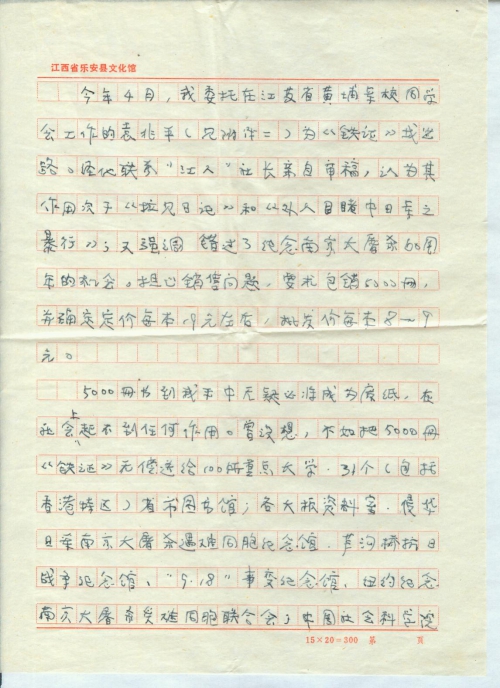 江西省乐安县文化馆
今年4月，我委托在江苏省黄埔军校同学
会工作的袁兆平（见附件二）为《铁证》找出
路。经他联系“江人”社长亲自审稿，认为其
作用次于《拉贝日记》和《外人目睹中日军之
暴行》；又强调错过了纪念南京大屠杀60周
年的机会。担心销售问题，要求包销5000册，
并确定定价每本19元左右，批发价每本8—9
元。
5000册书到我手中无疑必将成为废纸，在
社会上起不到任何作用。曾设想，不如把5000册
《铁证》无偿送给100所重点大学、31个（包括
香港特区）省市图书馆；各大报资料室、侵华
日军南京大屠杀遇难同胞纪念馆、芦沟桥抗日
战争纪念馆、“9.18”事变纪念馆、纽约纪念
南京大屠杀受难同胞联合会；中国社会科学院
15×20=300 第 页